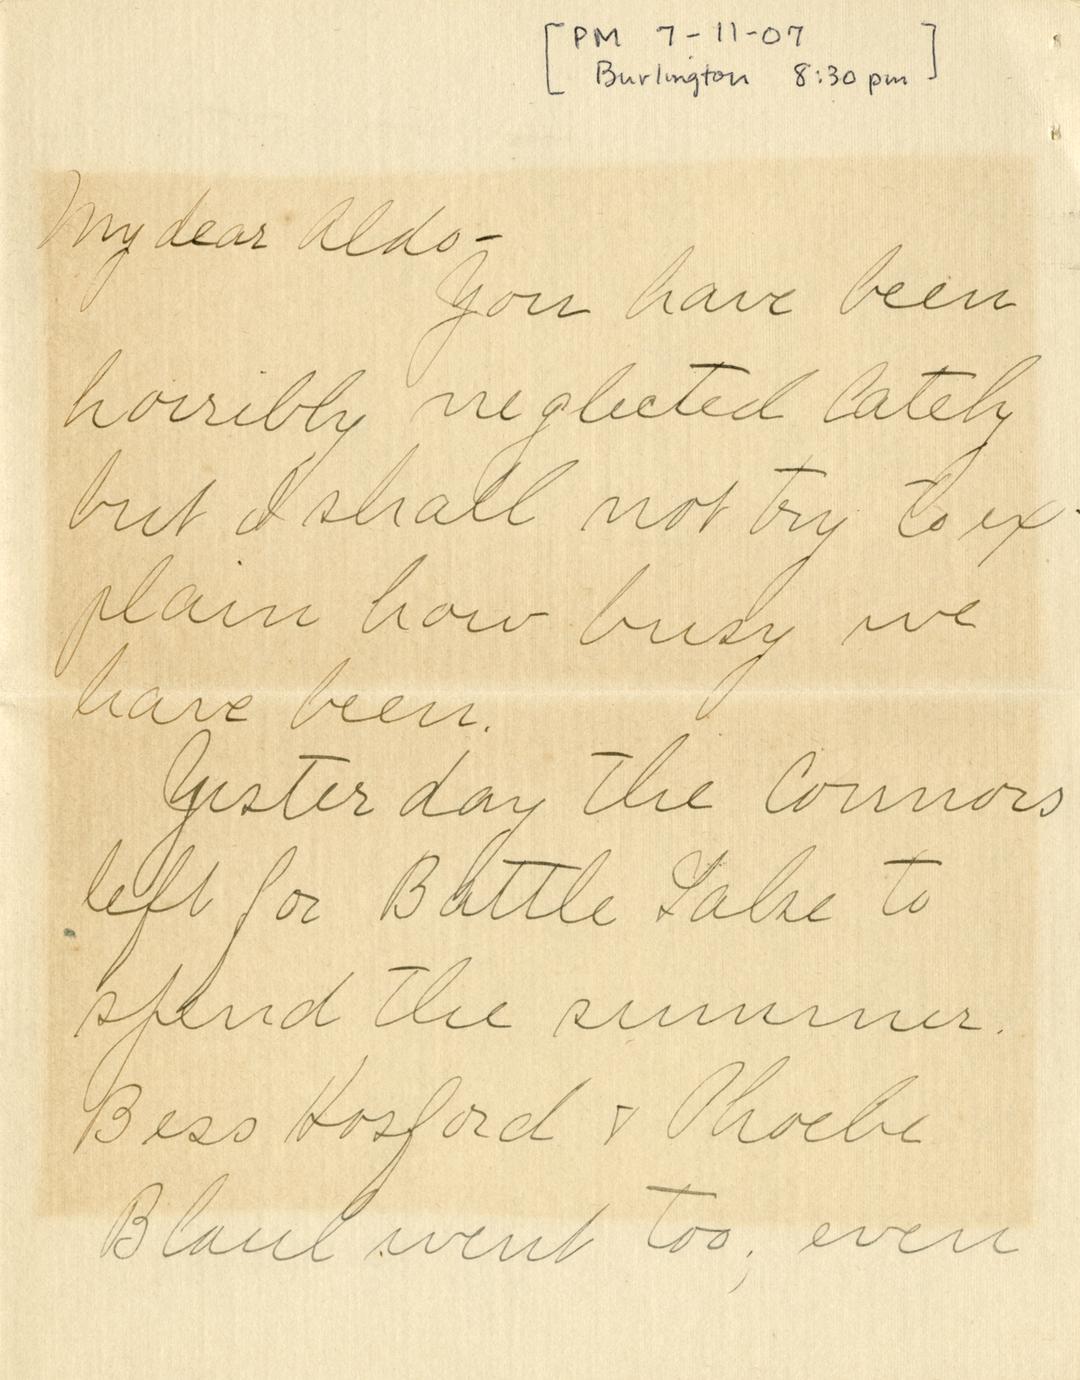 [PM 7-11-07
Burlington 8:30 pm]
My dear Aldo-
You have been
horribly neglected lately
but I shall not try to ex-
plain how busy we
have been.
Yesterday the Connors
left for Battle Lake to
spend the summer.
Bess Hosford & Phoebe
Blaul went too, even